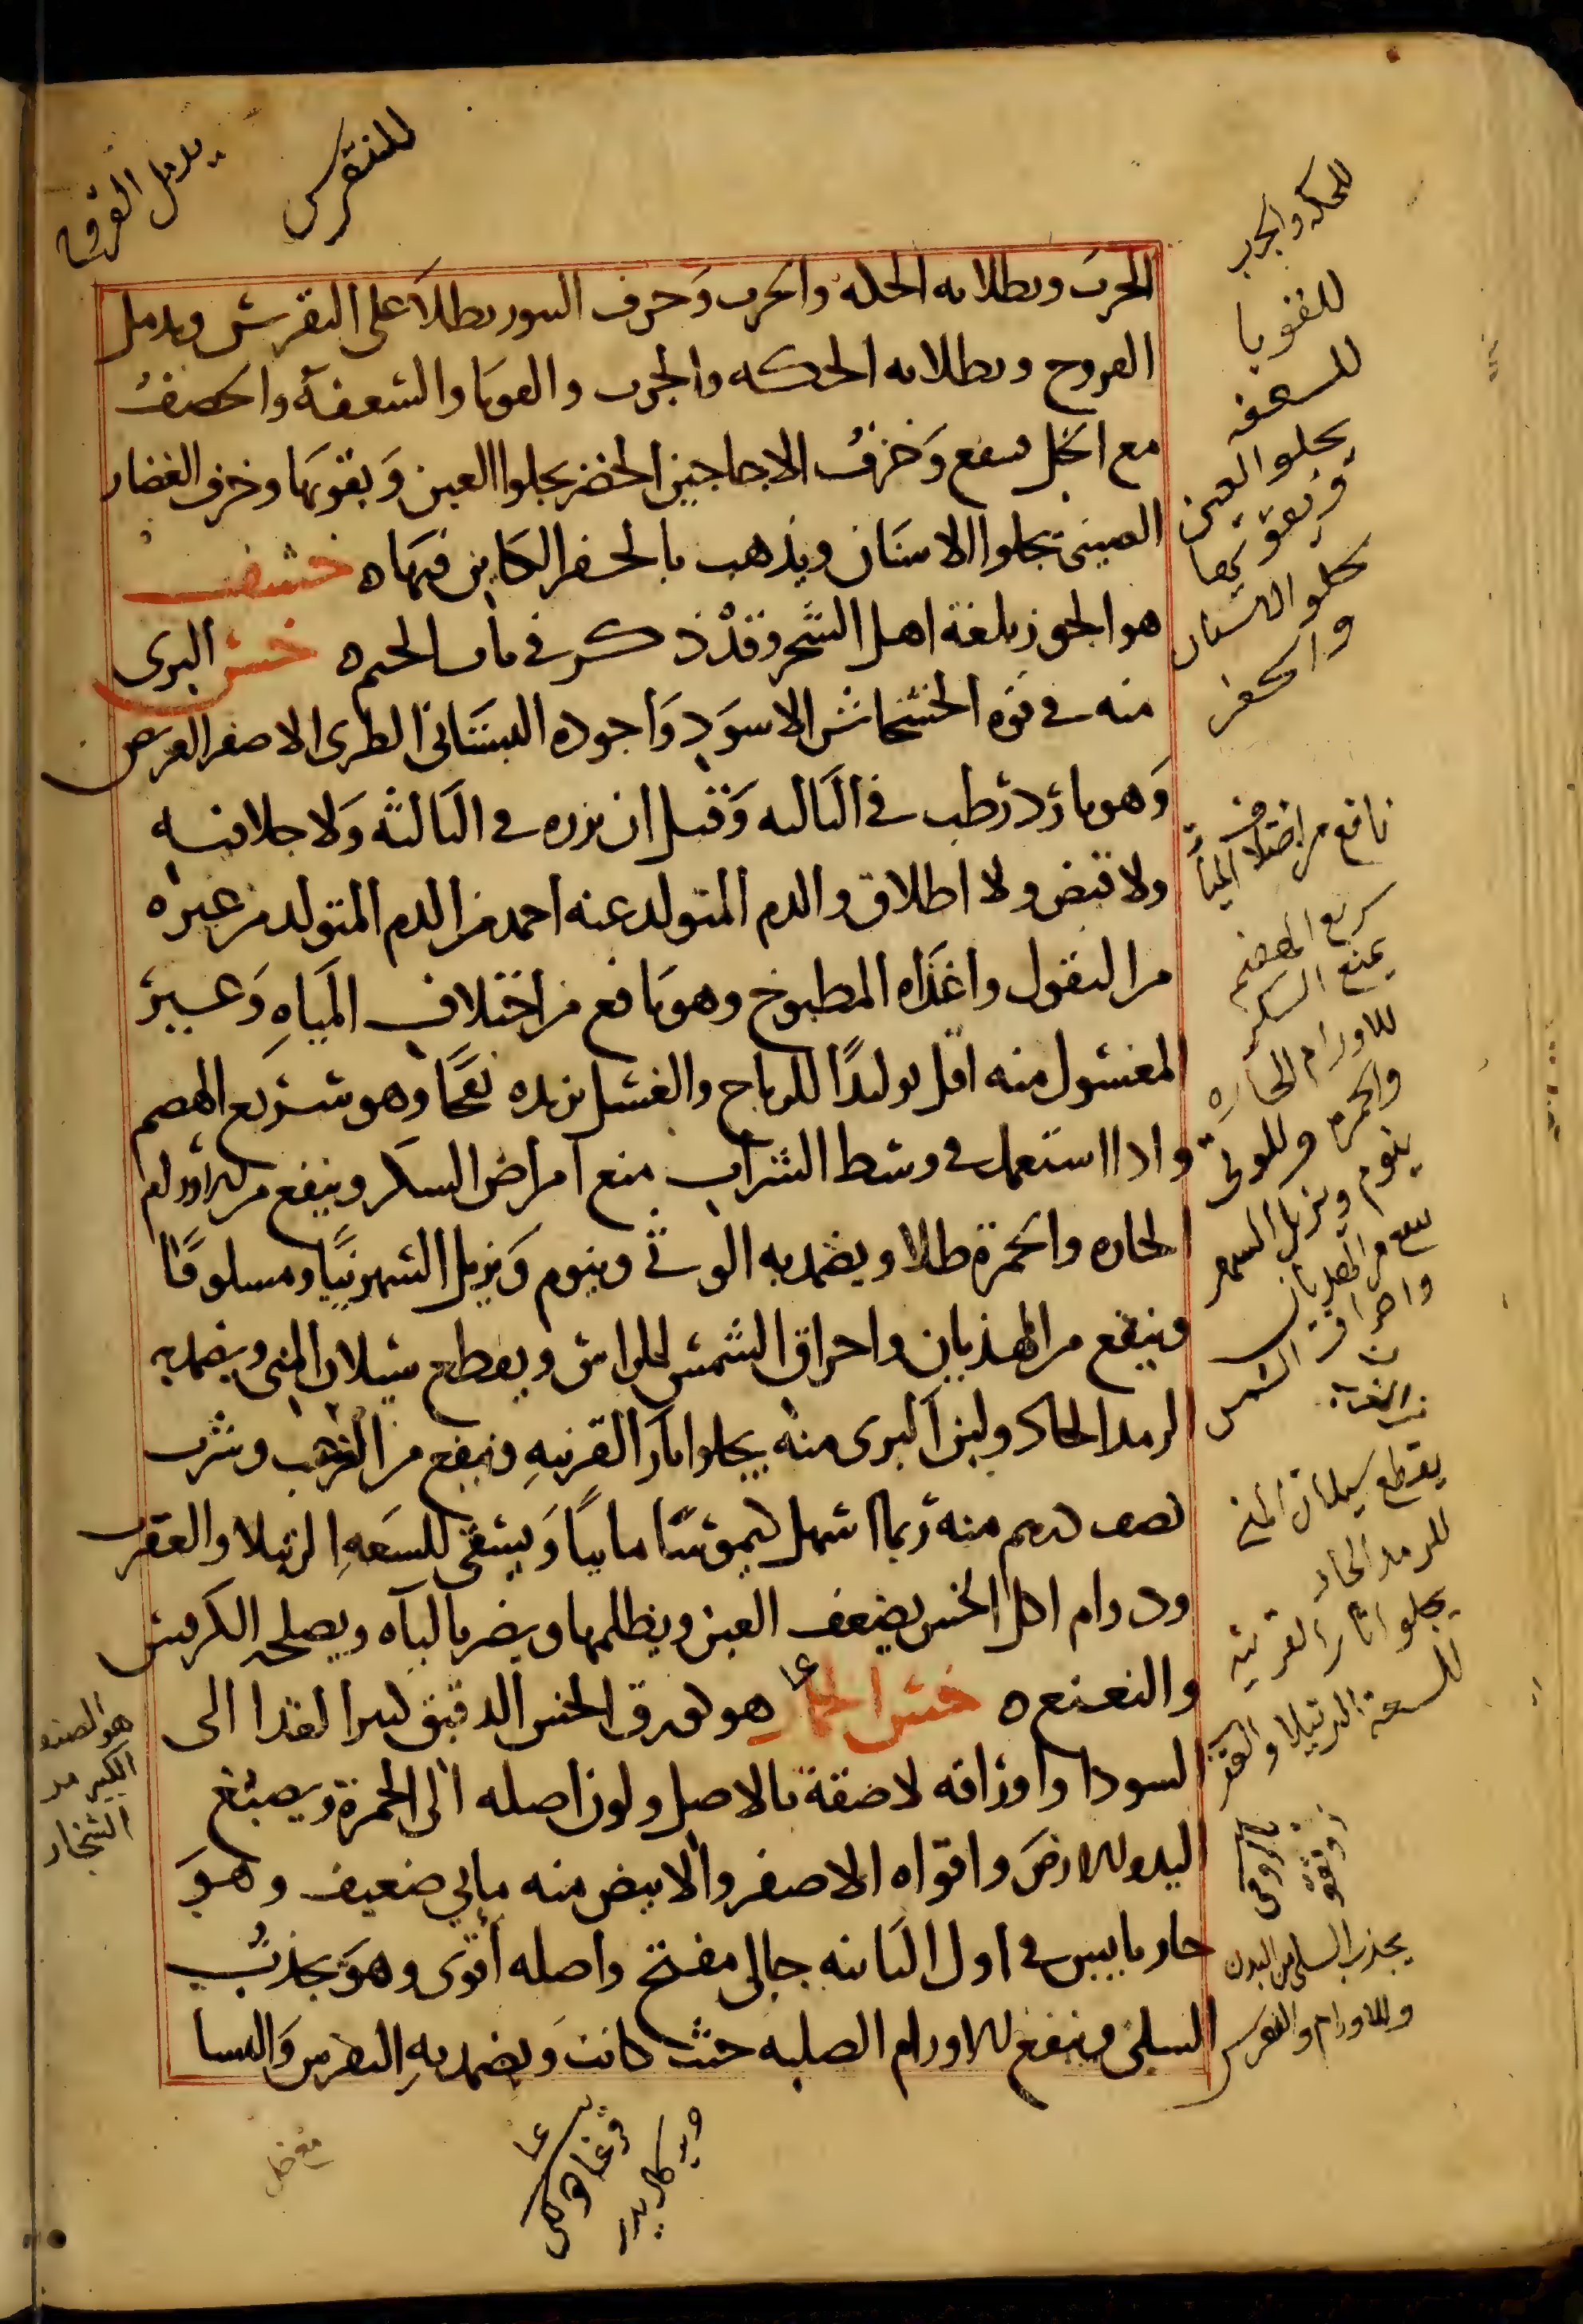 للنقرس
يدمل القروح
الجرب ويطلا به الحكه والجرب وخزف التنور يطلا على النقرس ويدمل
القروح ويطلا به الحكه والجرب والقوبا والسعفة والخصف
مع الخل ينفع وخزف الاجاجين الخضر يجلوا العين ويقويها وخزف الغضار
الصينى يجلوا الاسنان ويذهب بالحفر الكاين فيها ه خشف
هو الجوز بلغة اهل الشحر وقد ذكر فى باب الجيم ه خس البرى
منه فى قوة الخشخاش الاسود واجوده البستانى الطرى الاصفر العريض
وهو بارد رطب فى الثالثه وقيل ان برده فى الثالثة ولا جلا فيه
ولا قبض ولا اطلاق والدم المتولد عنه احمد من الدم المتولد من غيره
من البقول واغذاه المطبوخ وهو نافع من اختلاف المياه وغير
المغسول منه اقل توليدًا للرياح والغسل يزيده نفخًا وهو سريع الهضم
واذا استعمل فى وسط الشراب منع امراض السكر وينفع من الاورام
الحاره والحمرة طلا ويضمد به الوثى وينوم ويزيل السهر نيًا ومسلوقًا
وينفع من الهذيان واحراق الشمس للراس ويقطع سيلان المنى ويضمد به
الرمد الحاد ولبن البرى منه يجلوا اثار القرنيه وينفع من الغرب وشرب
نصف درهم منه ربما اسهل كيموسًا مائيًا ويسقى للسعه الرتيلا والعقرب
ودوام اكل الخس يضعف العين ويظلمها ويضر بالباه ويصلحه الكرفس
والنعنع ه خس الحمار هو كورق الخس الدقيق كثير العدد الى
السودا واوراقه لاصقة بالاصل ولون اصله الى الحمرة ويصبغ
اليد والارض واقواه الاصفر والابيض منه مايى ضعيف وهو
حار يابس فى اول الثانيه جالى مفتح واصله اقوى وهو يجذب
السلى وينفع للاورام الصلبه حيث كانت ويضمد به النقرس والنسا
للحكه والجرب
للقوبا
للسعفه
يجلو العين
ويقويها
يجلو الاسنان
والحفر
نافع من اختلاف المياه
سريع الهضم
يمنع السكر
للاورام الحاره
والحمرة وللوثى
ينوم ويزيل السهر
ينفع من الهذيان
واحراق الشمس
يقطع سيلان المنى
للرمد الحار
يجلو اثار القرنيه
للسعة الرتيلا والعقرب
يجذب السلى من البدن
وللاورام والنقرس
هو الصنف
الكبير من
الشنجار